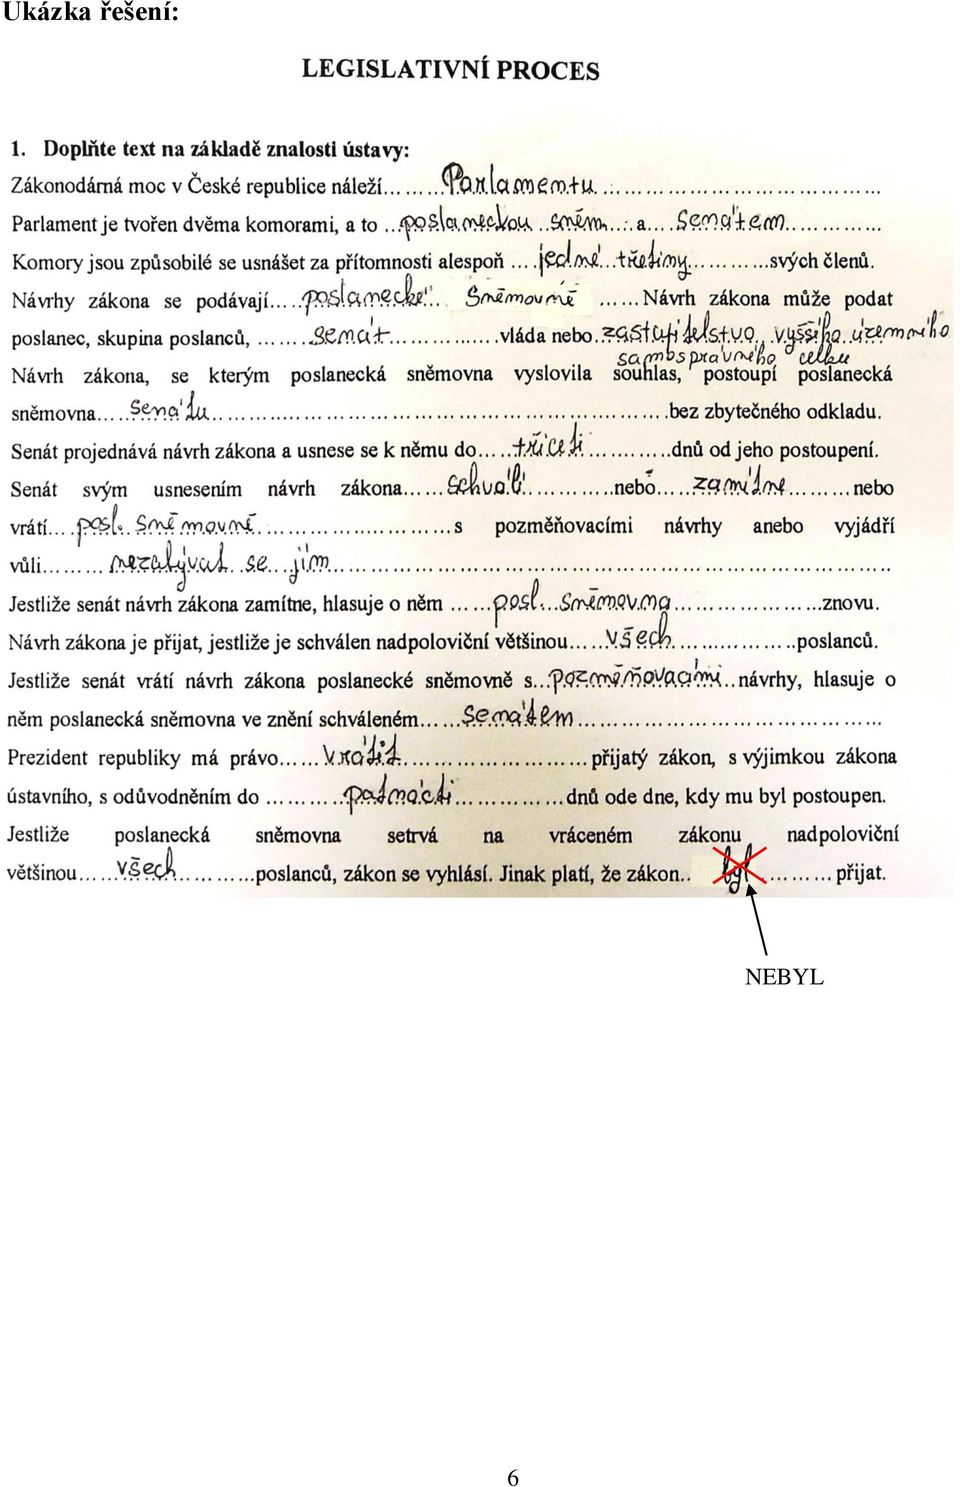 Ukázka řešení:
LEGISLATIVNÍ PROCES
1. Doplňte text na základě znalosti ústavy:
Zákonodárná moc v České republice náleží.........Parlamentu..............................
Parlament je tvořen dvěma komorami, a to ...poslaneckou sněm.....a.....Senátem...............
Komory jsou způsobilé se usnášet za přítomnosti alespoň ....jedné...třetiny............svých členů.
Návrhy zákona se podávají.....poslanecké... Sněmovně ......Návrh zákona může podat
poslanec, skupina poslanců, ........senát...............vláda nebo..zastupitelstvo..vyššího..územního
samosprávného celku
Návrh zákona, se kterým poslanecká sněmovna vyslovila souhlas, postoupí poslanecká
sněmovna.....Senátu..............................bez zbytečného odkladu.
Senát projednává návrh zákona a usnese se k němu do.....třiceti............dnů od jeho postoupení.
Senát svým usnesením návrh zákona......schválí............nebo......zamítne.........nebo
vrátí....posl. Sněmovně.....................s pozměňovacími návrhy anebo vyjádří
vůli.........nezabývat..se...jím..............................
Jestliže senát návrh zákona zamítne, hlasuje o něm ......posl...Sněmovna.....................znovu.
Návrh zákona je přijat, jestliže je schválen nadpoloviční většinou......všech...............poslanců.
Jestliže senát vrátí návrh zákona poslanecké sněmovně s...pozměňovacími..návrhy, hlasuje o
něm poslanecká sněmovna ve znění schváleném......Senátem..............................
Prezident republiky má právo......vrátit........................přijatý zákon, s výjimkou zákona
ústavního, s odůvodněním do ............patnácti...............dnů ode dne, kdy mu byl postoupen.
Jestliže poslanecká sněmovna setrvá na vráceném zákonu nadpoloviční
většinou......všech............poslanců, zákon se vyhlásí. Jinak platí, že zákon.. byl ..........přijat.
NEBYL
6